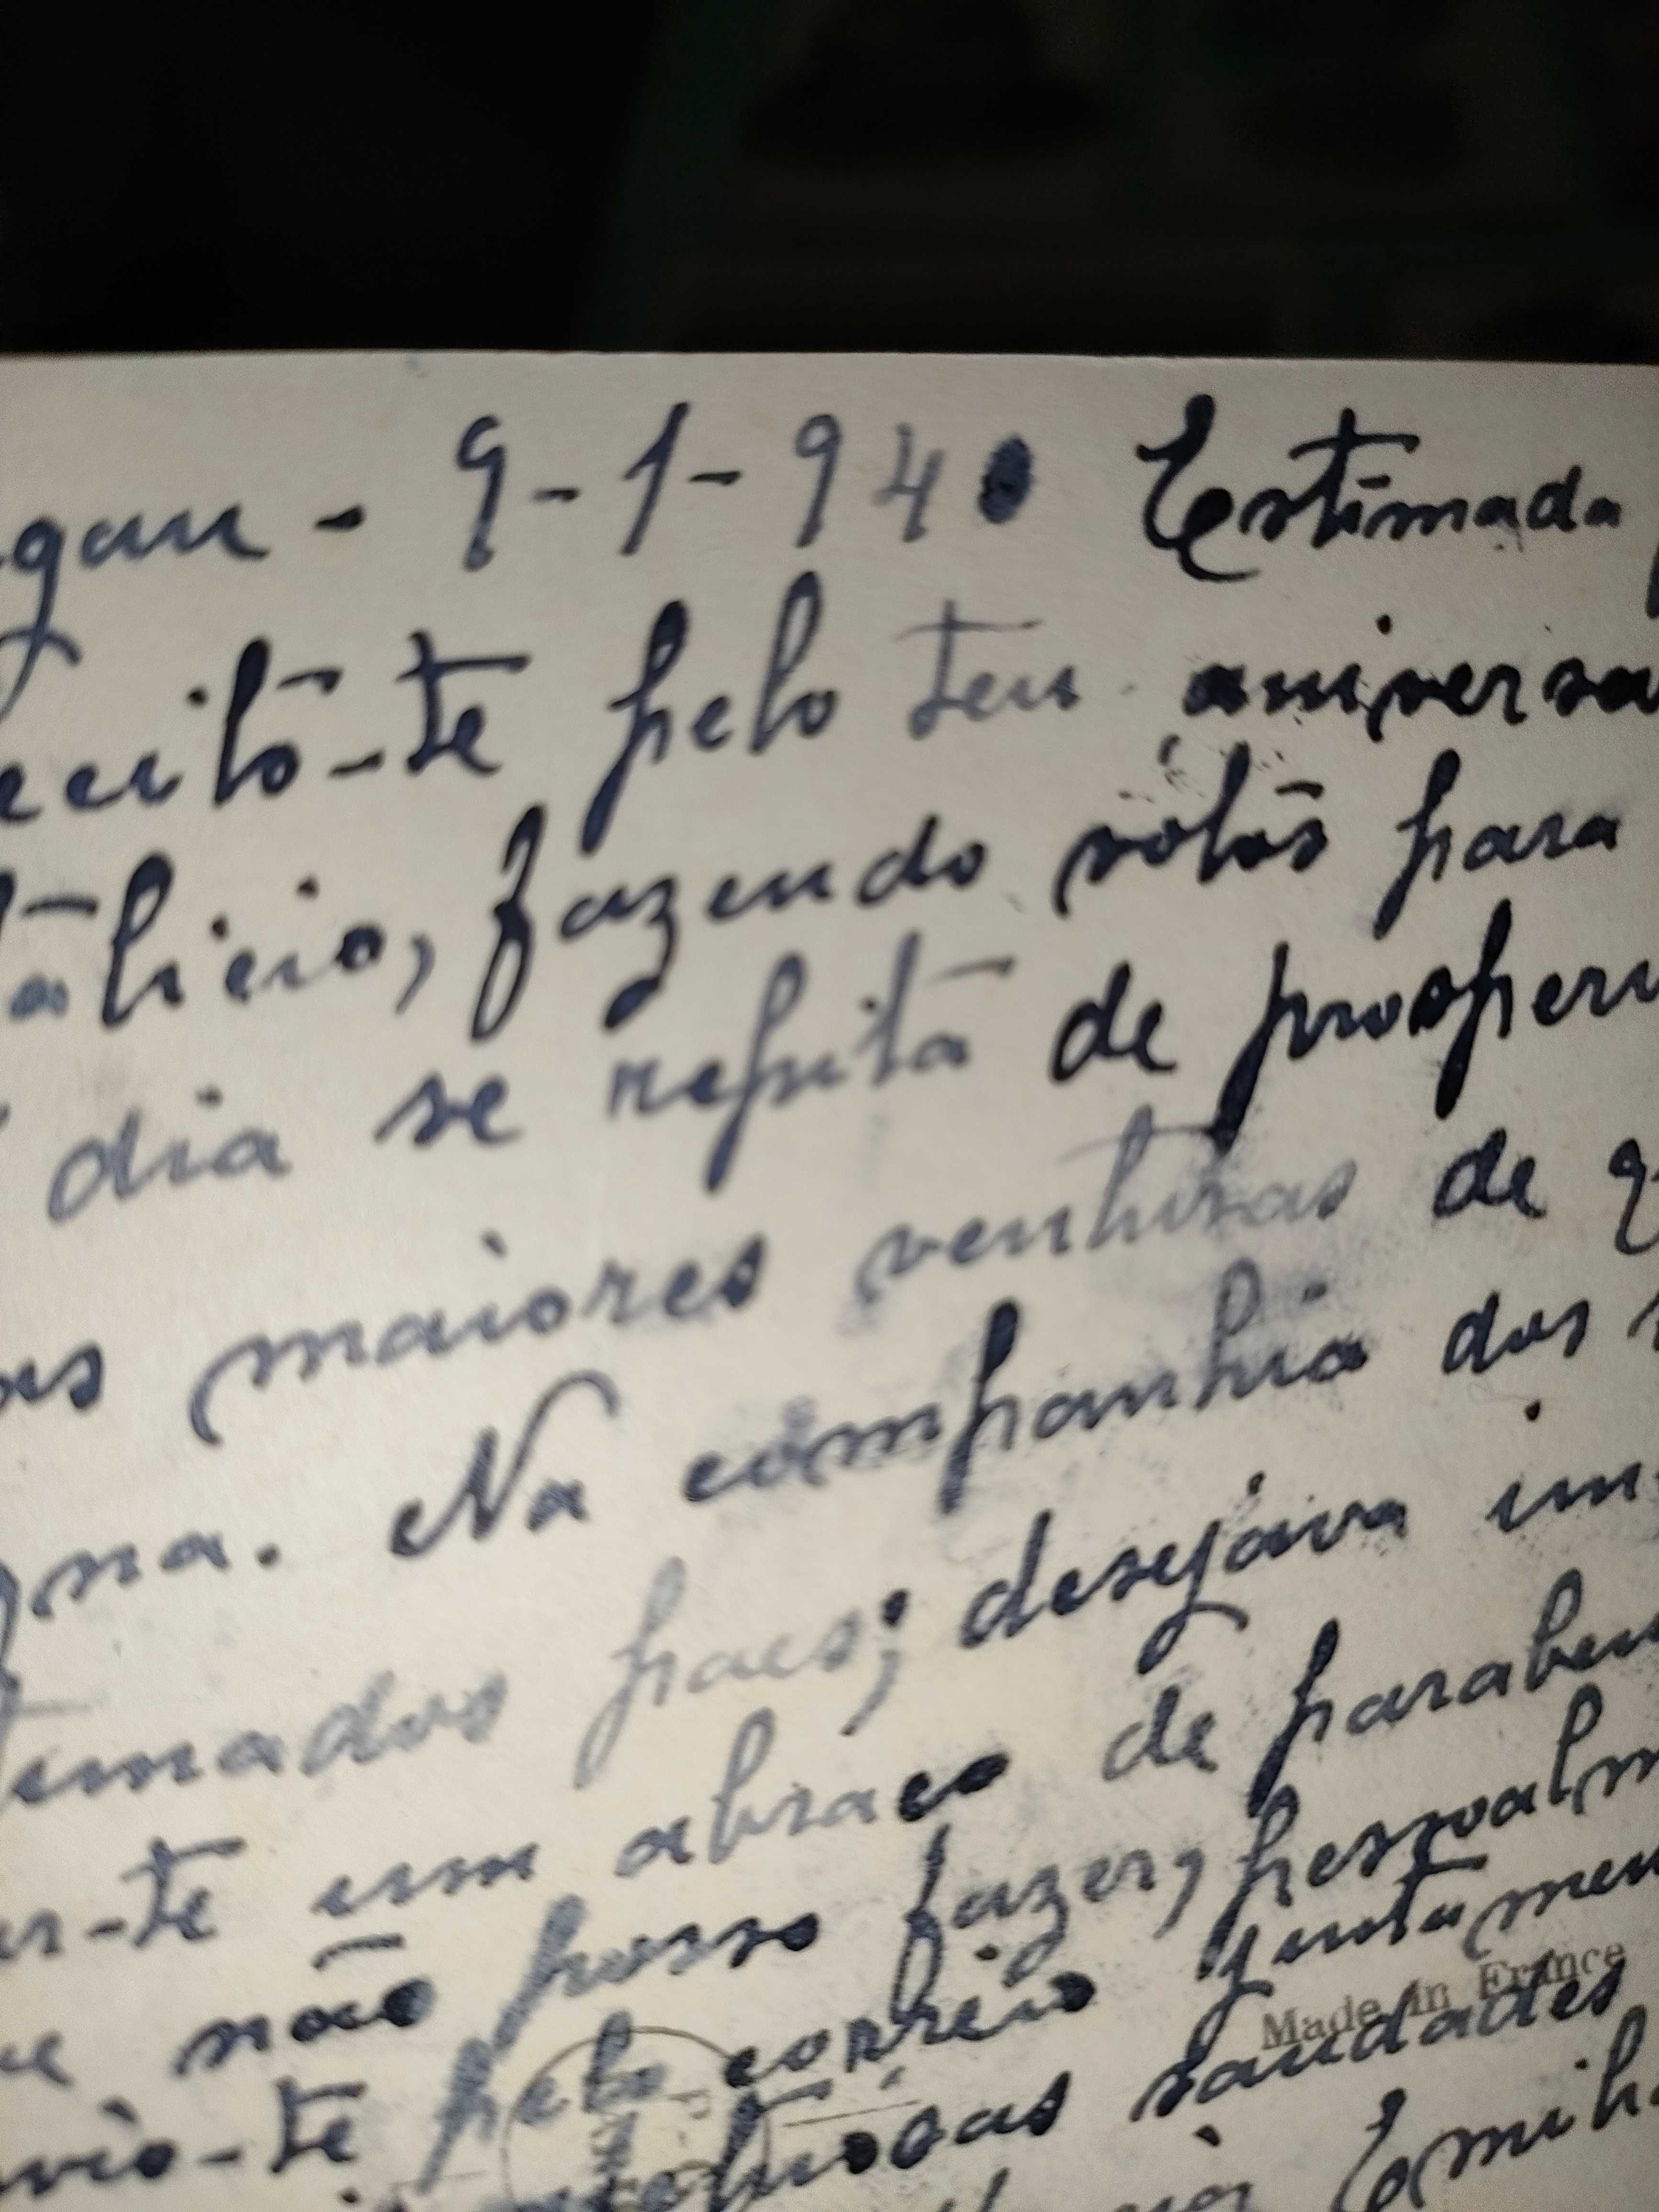 gau - 9-1-940 Estimada
icito-te pelo teu aniversa
talicio, fazendo vótos para
dia se repita de prosperi
as maiores venturas de q
gna. Na companhia dos
timados paes; desejava im-
ar-te um abraco de parabens
não posso fazer, pessoalm
vio-te pelo correio juntamen
Made in France
saudades
Emili